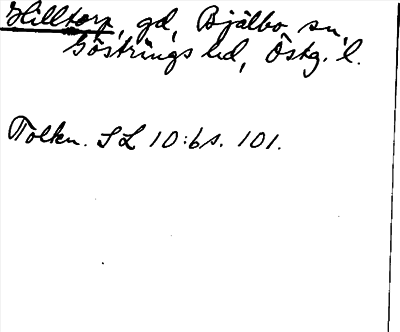 Hilltorp, gd, Bjälbo sn,
Göstrings hd, Östg. l.
Tolkn. SL 10:b s. 101.